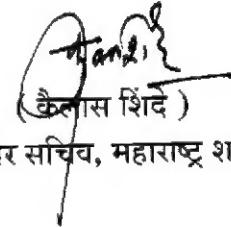 ( कैलास शिंदे )
सचिव, महाराष्ट्र